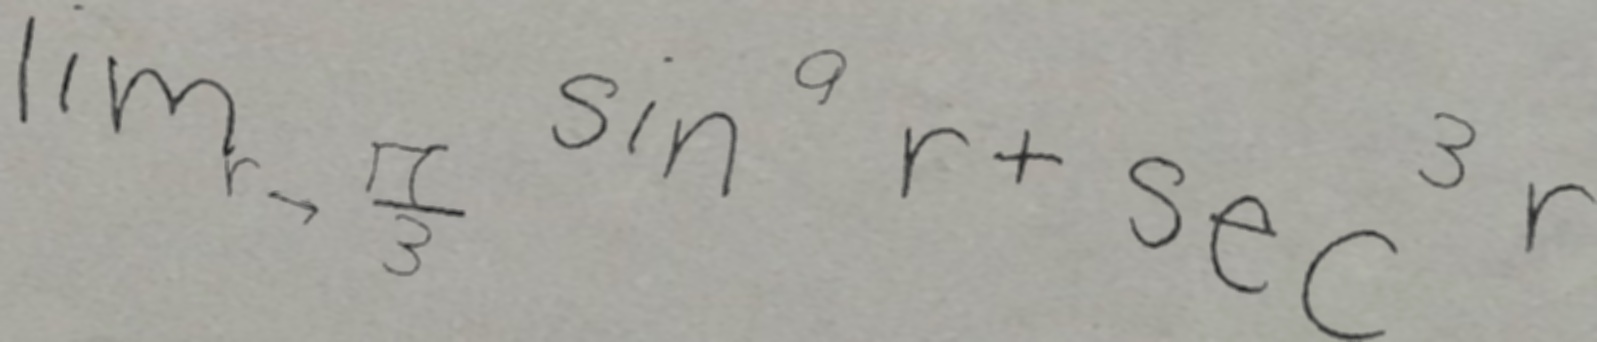 lim_{r→\frac{π}{3}} sin^9 r + sec^3 r